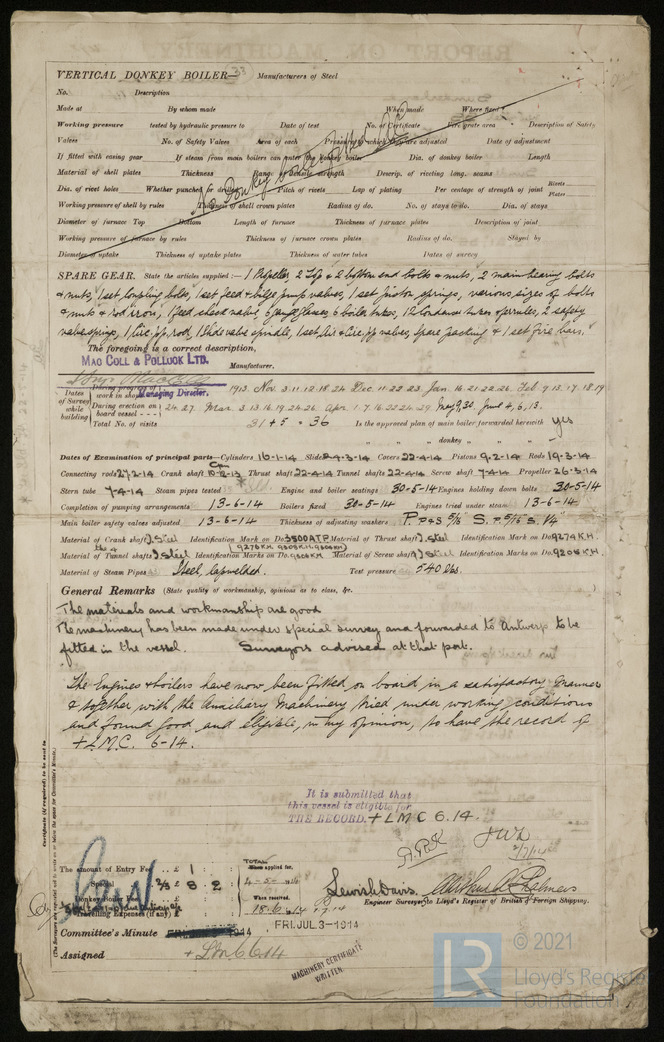 VERTICAL DONKEY BOILER— Manufacturers of Steel
No. Description
Made at By whom made When made Where fixed
Working pressure tested by hydraulic pressure to Date of test No. of Certificate Fire grate area Description of Safety
Valves No. of Safety Valves Area of each Pressure to which they are adjusted Date of adjustment
If fitted with easing gear If steam from main boilers can enter the donkey boiler Dia. of donkey boiler Length
Material of shell plates Thickness Range of tensile strength Descrip. of riveting long. seams
Dia. of rivet holes Whether punched or drilled Pitch of rivets Lap of plating Per centage of strength of joint Rivets Plates
Working pressure of shell by rules Thickness of shell crown plates Radius of do. No. of stays to do. Dia. of stays
Diameter of furnace Top Bottom Length of furnace Thickness of furnace plates Description of joint
Working pressure of furnace by rules Thickness of furnace crown plates Radius of do. Stayed by
Diameter of uptake Thickness of uptake plates Thickness of water tubes Dates of survey
No Donkey boiler fitted
SPARE GEAR. State the articles supplied:— 1 Propeller, 2 Top & 2 bottom end bolts & nuts, 2 main bearing bolts
& nuts, 1 set coupling bolts, 1 set feed & bilge pump valves, 1 set piston springs, various sizes of bolts
& nuts & rod iron, 1 feed check valve, 6 gauge glasses, 6 boiler tubes, 12 condenser tubes & ferrules, 2 safety
valve springs, 1 Circ. pp. rod, 1 slide valve spindle, 1 set Air & Circ. pp valves, spare packing & 1 set fire bars.
The foregoing is a correct description,
MAC COLL & POLLOCK LTD. Manufacturer.
Managing Director.
Dates of Survey while building
During progress of work in shops - - 1913. Nov. 3. 11. 12. 18. 24 Dec. 11. 22. 23. Jan. 16. 21. 22. 26. Feb 9. 13. 17. 18. 19
During erection on board vessel - - - 24. 27. Mar. 3. 13. 16. 19. 24. 26. Apr. 1. 7. 16. 22. 24. 29. May 9, 30. June 4, 6, 13.
Total No. of visits 31 + 5 = 36 Is the approved plan of main boiler forwarded herewith yes
" " " donkey " " "
Dates of Examination of principal parts—Cylinders 16-1-14 Slides 24-3-14 Covers 22-4-14 Pistons 9-2-14 Rods 19-3-14
Connecting rods 27-2-14 Crank shaft 10-12-13 Thrust shaft 22-4-14 Tunnel shafts 22-4-14 Screw shaft 7-4-14 Propeller 26-3-14
Stern tube 7-4-14 Steam pipes tested Engine and boiler seatings 30-5-14 Engines holding down bolts 30-5-14
Completion of pumping arrangements 13-6-14 Boilers fixed 30-5-14 Engines tried under steam 13-6-14
Main boiler safety valves adjusted 13-6-14 Thickness of adjusting washers P. P & S 5/16" S. P. 5/16" S. 1/4"
Material of Crank shaft I Steel Identification Mark on Do. 3500ATP Material of Thrust shaft I. steel Identification Mark on Do. 9274KH
Material of Tunnel shafts I steel Identification Marks on Do. 9276KH. 9303KH. 9606KH Material of Screw shaft I steel Identification Marks on Do. 9206KH
Material of Steam Pipes Steel, lapwelded. Test pressure 540 lbs.
General Remarks (State quality of workmanship, opinions as to class, &c.
The materials and workmanship are good
The machinery has been made under special survey and forwarded to Antwerp to be
fitted in the vessel. Surveyors advised at that port.
The Engines & boilers have now been fitted on board in a satisfactory manner
& together with the Auxiliary Machinery tried under working conditions
and found good and eligible, in my opinion, to have the record of
+ L.M.C. 6-14.
It is submitted that
this vessel is eligible for
THE RECORD. + LMC 6.14.
JWD
2/7/14
The amount of Entry Fee .. £ 1 : :
Special .. 2/3 £ 8 : 2 :
Donkey Boiler Fee .. £
Travelling Expenses (if any) £
When applied for, 4-5-1914
When received, 18.6.1914
Lewis Davis. Arthur R. Chalmers
Engineer Surveyor to Lloyd's Register of British & Foreign Shipping.
Committee's Minute FRI. JUL 3-1914
Assigned + LMC 6.14
MACHINERY CERTIFICATE
WRITTEN.
Certificate (if required) to be sent to
(The Surveyors are requested not to write on or below the space for Committee's Minute.)
© 2021
Lloyd's Register
Foundation
LR